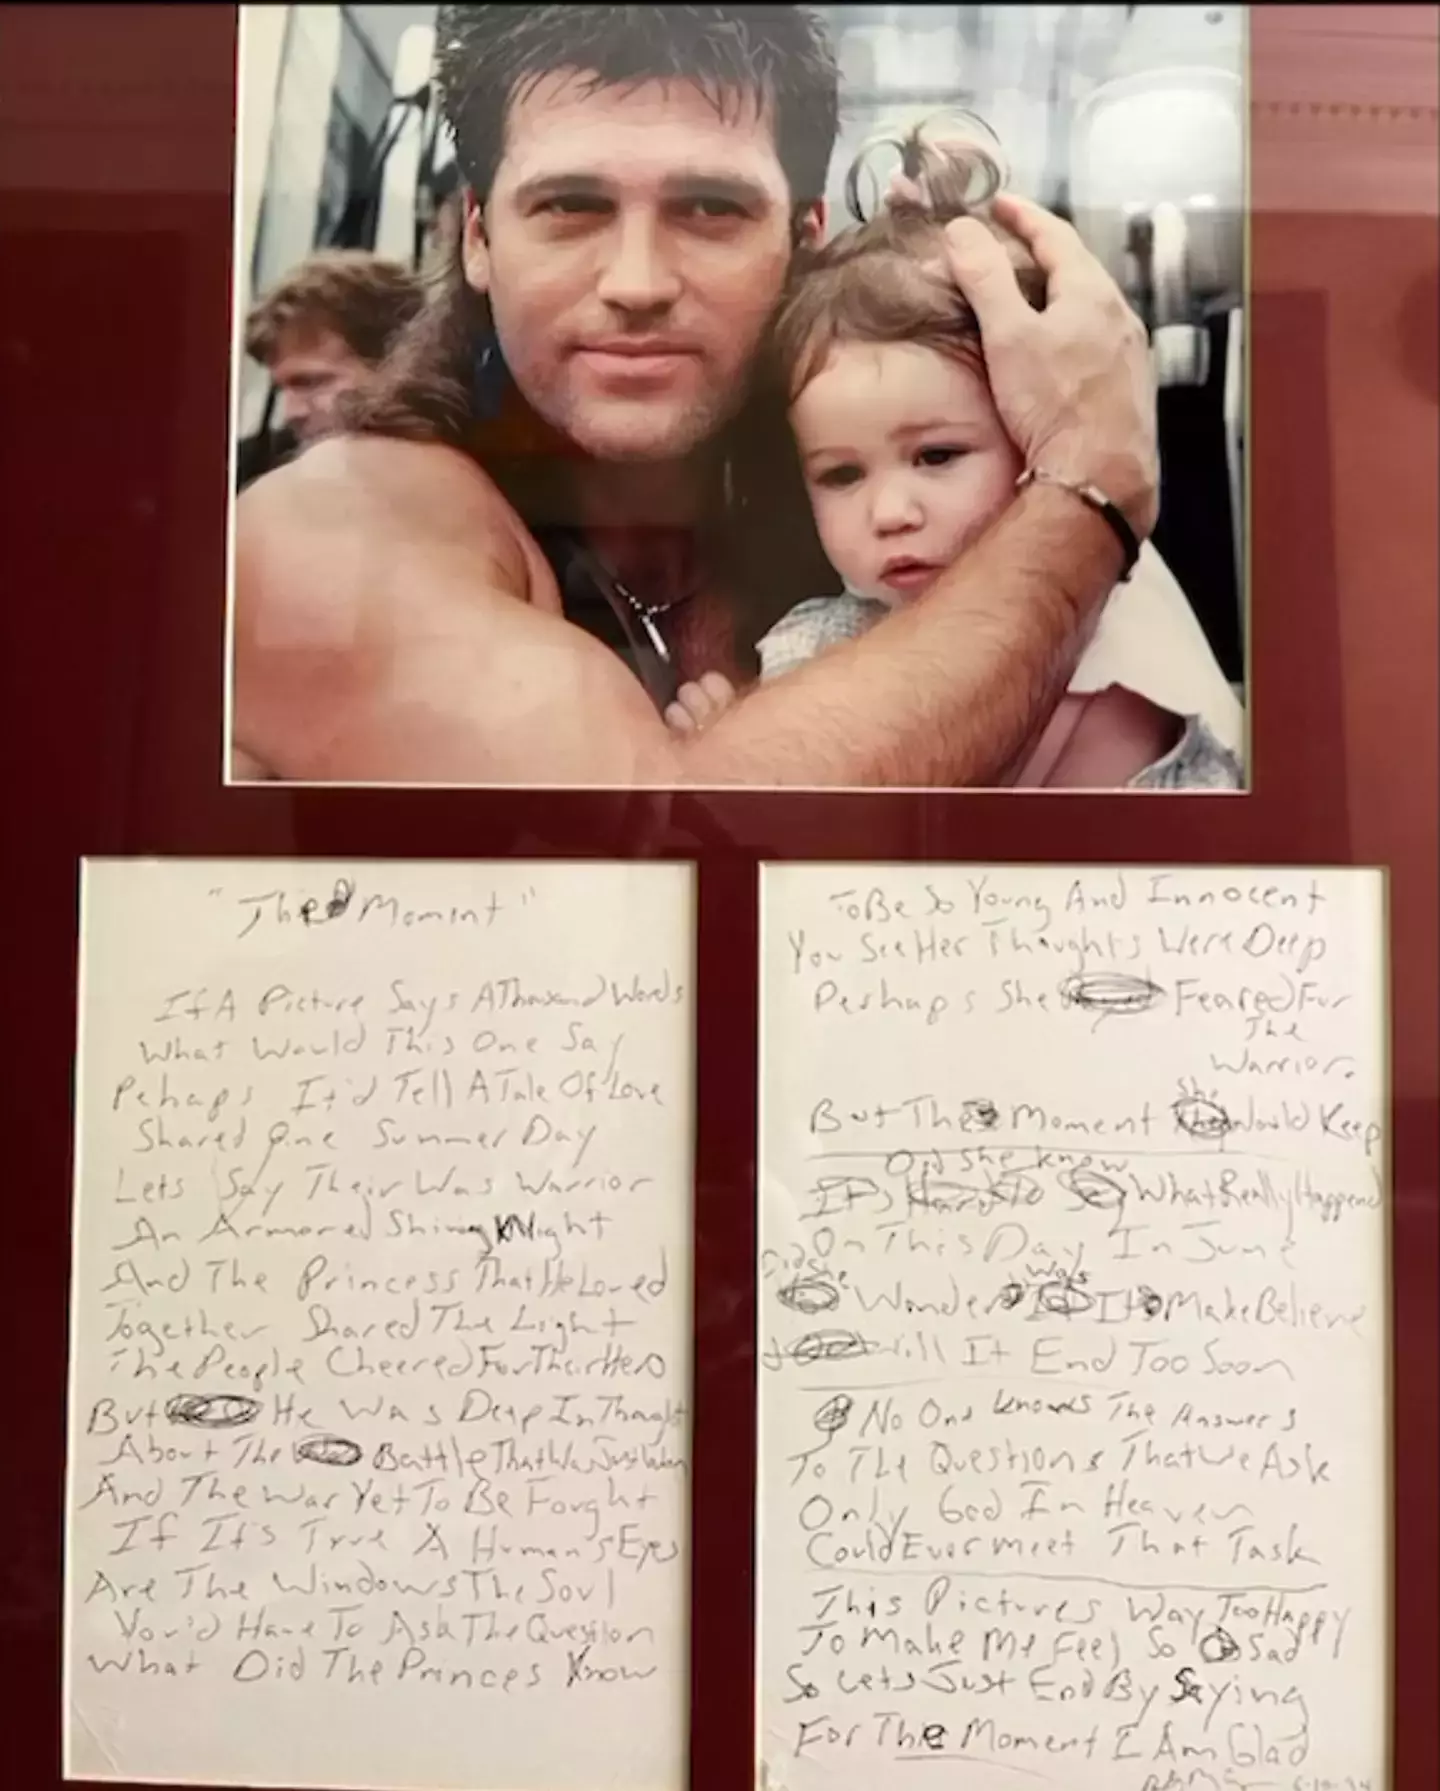 "The Moment"
If A Picture Says A Thousand Words
What Would This One Say
Pehaps It'd Tell A Tale Of Love
Shared One Summer Day
Lets Say Their Was Warrior
An Armored Shining Knight
And The Princess That He Loved
Together Shared The Light
The People Cheered For Their Hero
But He Was Deep In Thought
About The Battle That Was Just
And The War Yet To Be Fought
If It's True A Human's Eyes
Are The Windows The Soul
You'd Have To Ask The Question
What Did The Princes Know
To Be So Young And Innocent
You See Her Thoughts Were Deep
Perhaps She Feared For
The
Warrior.
But The Moment She Would Keep
Did She Know
What Really Happened
On This Day In June
Did She
Wonder Was It Make Believe
Will It End Too Soon
No One Knows The Answers
To The Questions That We Ask
Only God In Heaven
Could Ever Meet That Task
This Pictures Way Too Happy
To Make Me Feel So Sad
So Lets Just End By Saying
For The Moment I Am Glad